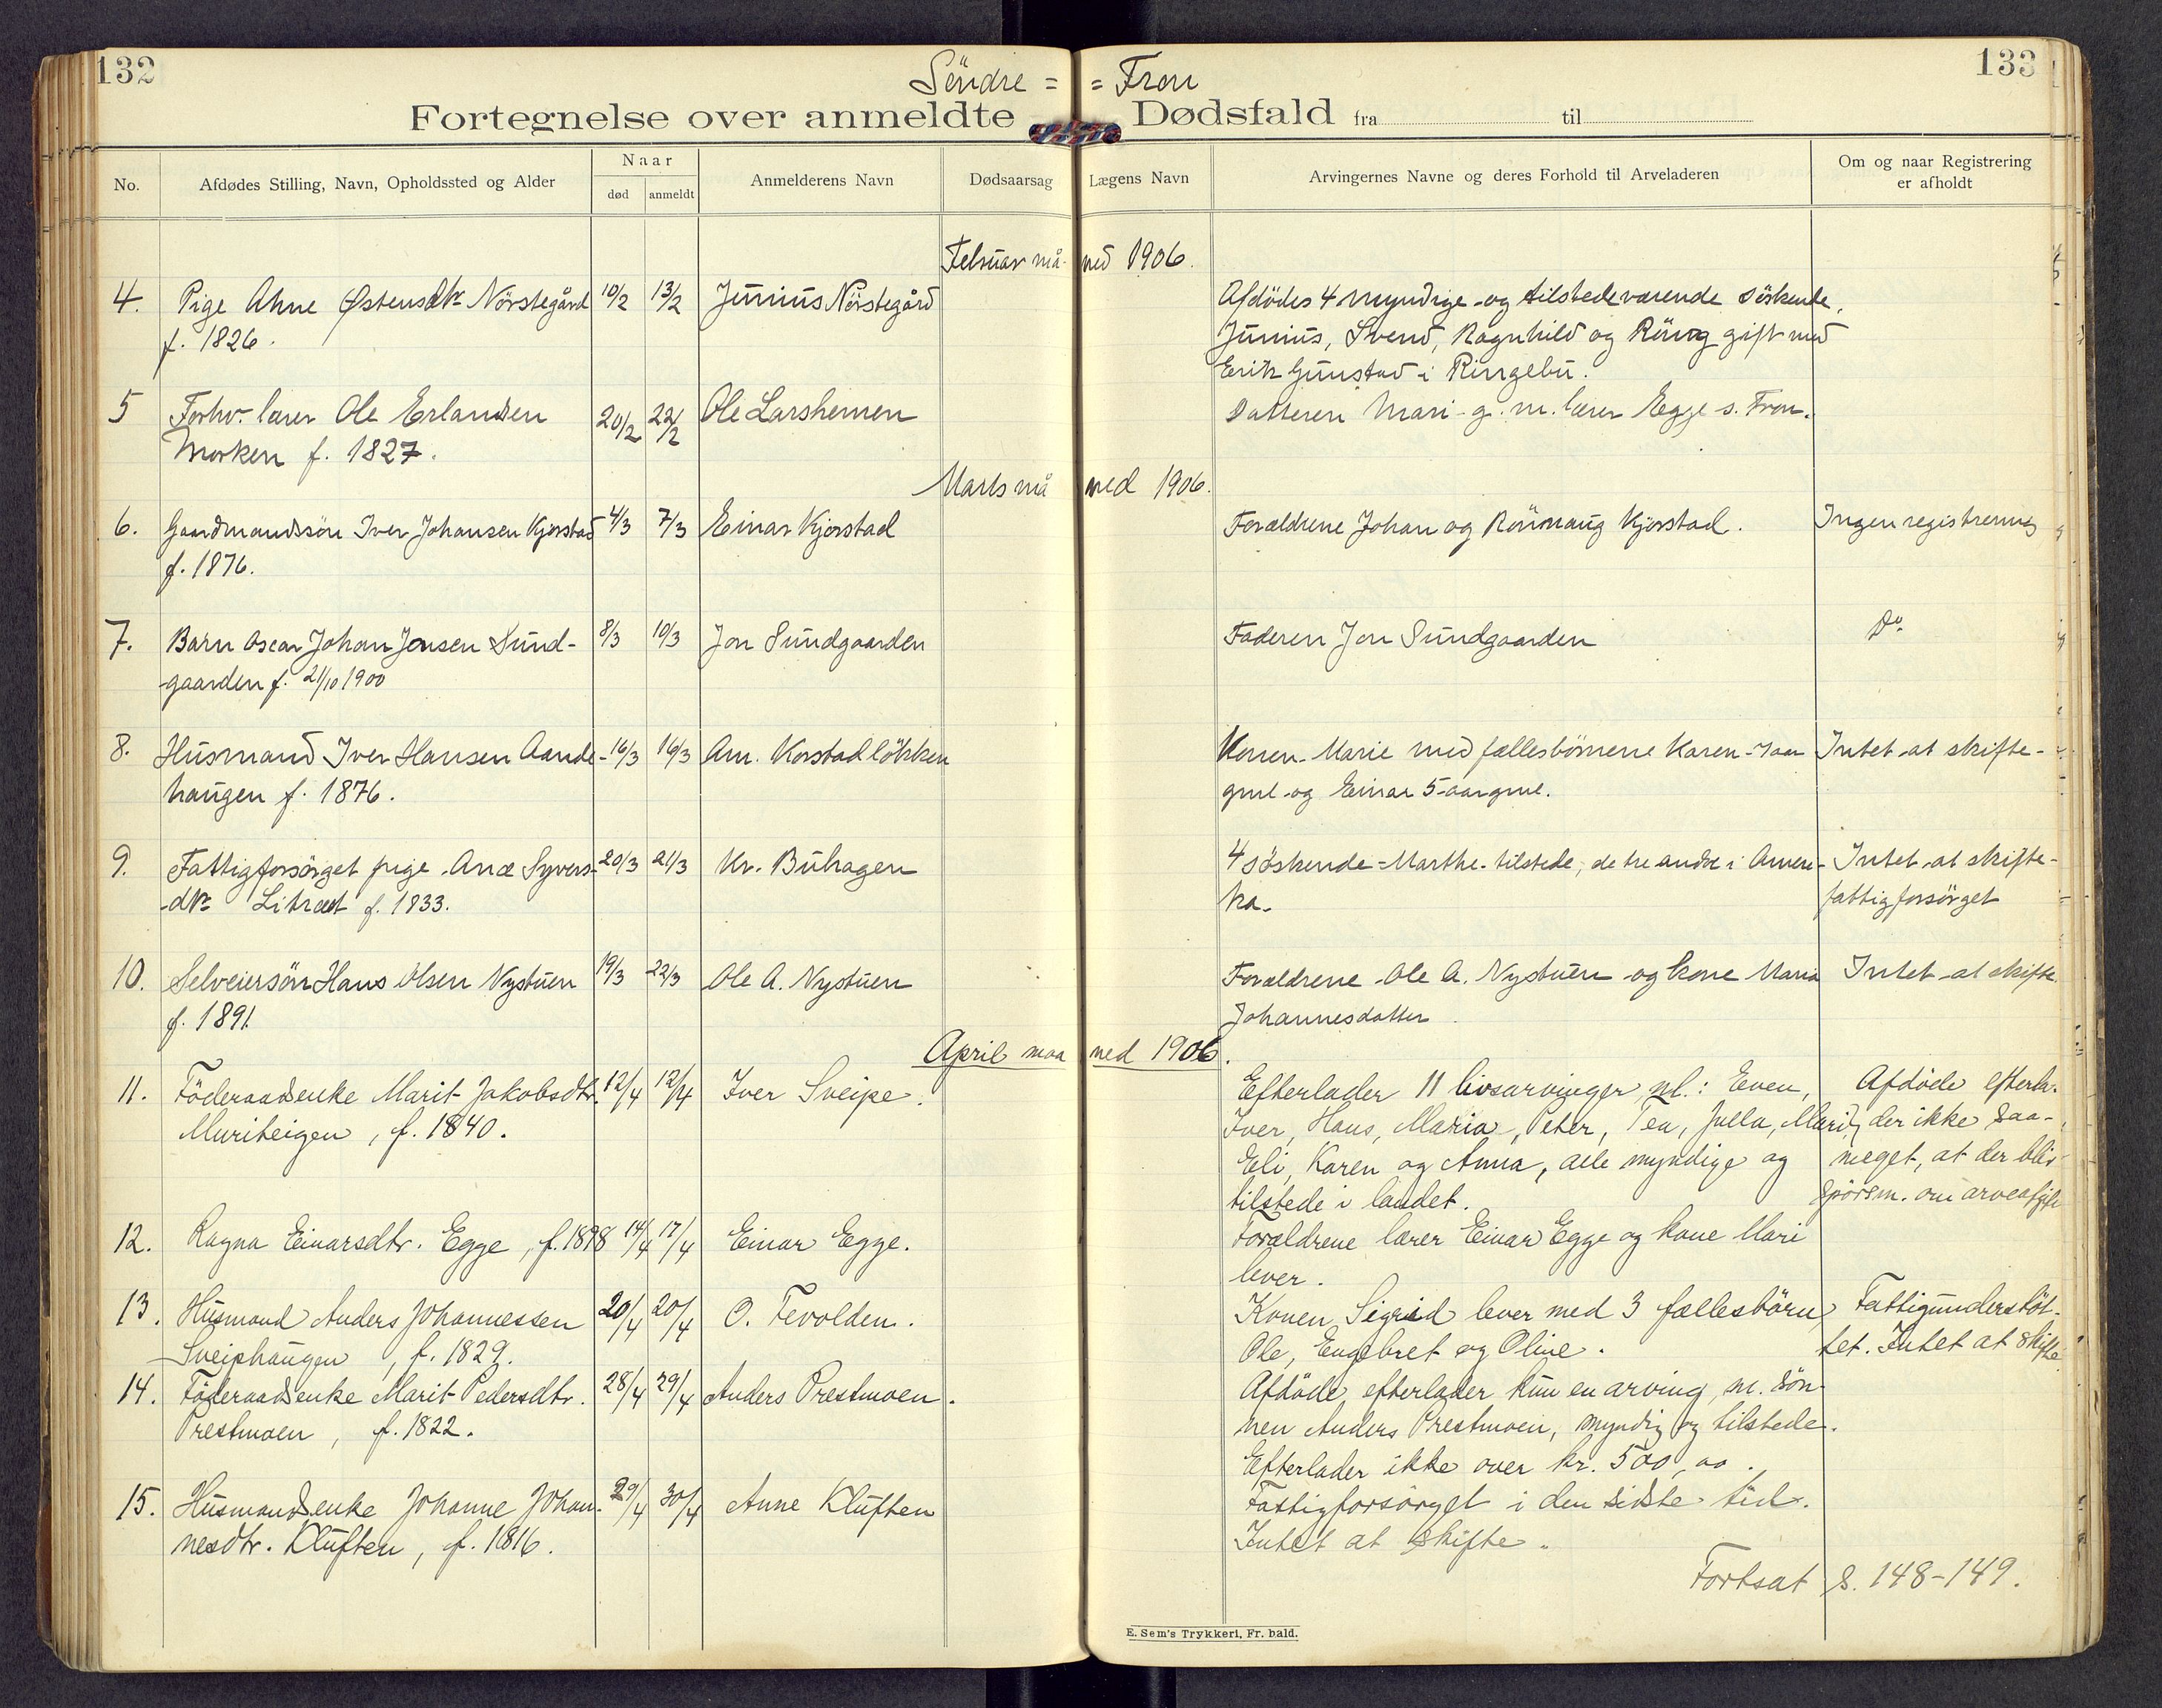 132
133
Söndre = = Fron
Fortegnelse over anmeldte Dødsfald fra til
No.
Afdødes Stilling, Navn, Opholdssted og Alder
Naar
død anmeldt
Anmelderens Navn
Dødsaarsag
Lægens Navn
Arvingernes Navne og deres Forhold til Arveladeren
Om og naar Registrering
er afholdt
Februar må- ned 1906.
4. Pige Ahne Østensdtr Nörstegård 10/2 13/2 Junius Nörstegård Afdödes 4 myndige og tilstedeværende söskende,
f. 1826. Junius, Svend, Ragnhild og gift med
Erik Gunstad i Ringebu.
5 Forhv. lærer Ole Erlandsen 20/2 22/2 Ole Larshemen Datteren Mari g. m. lærer Egge s. Fron.
Morken f. 1827.
Marts må ned 1906.
6. Gaardmandssön Iver Johansen Kjorstad 4/3 7/3 Einar Kjorstad Forældrene Johan og Rönnaug Kjorstad. Ingen registrering
f. 1876.
7. Barn Oscar Johan Jensen Sund- 8/3 10/3 Jon Sundgaarden Faderen Jon Sundgaarden Do.
gaarden f. 21/10 1900
8. Husmand Iver Hansen Aande- 16/3 16/3 Am. Korstadlökken Konen Marie med fællesbörnene Karen 1 aar Intet at skifte-
haugen f. 1876. gml og Einar 5 aar gml.
9. Fattigforsörget pige Ane Syvers- 20/3 21/3 Kr. Buhagen 4 söskende - Marthe tilstede, de tre andre i Ameri- Intet at skifte-
dtr f. 1833. ka. fattigforsörget
10. Selveiersön Hans Olsen Nystuen 19/3 22/3 Ole A. Nystuen Forældrene Ole A. Nystuen og kone Maria Intet at skifte
f. 1891. Johannesdatter
April maa ned 1906.
11. Föderaadsenke Marit Jakobsdtr. 12/4 12/4 Iver Sveipe. Efterlader 11 livsarvinger, nl.: Even, Afdöde efterla-
Muriteigen, f. 1840. Iver, Hans, Maria, Peter, Tea, Julla, Mari, der ikke saa-
Eli, Karen og Anna, alle myndige og meget, at der blir
tilstede i landet. spörsm. om arveafgift
12. Ragna Einarsdtr. Egge, f. 1898 14/4 17/4 Einar Egge. Forældrene lærer Einar Egge og kone Mari
lever.
13. Husmand Anders Johannessen 20/4 20/4 O. Tevolden. Konen Sigrid lever med 3 fællesbörn, Fattigunderstöt-
Sveiphaugen, f. 1829. Ole, Engebret og Oline. tet. Intet at skifte.
14. Föderaadsenke Marit Pedersdtr. 28/4 29/4 Anders Prestmoen. Afdöde efterlader kun en arving, nl. sön-
Prestmoen, f. 1822. nen Anders Prestmoen, myndig og tilstede.
Efterlader ikke over kr. 500,00.
15. Husmandsenke Johanne Johan- 29/4 30/4 Anne Kluften Fattigforsörget i den sidste tid.
nesdtr. Kluften, f. 1816. Intet at skifte.
Fortsat s. 148-149.
E. Sem's Trykkeri, Fr. hald.